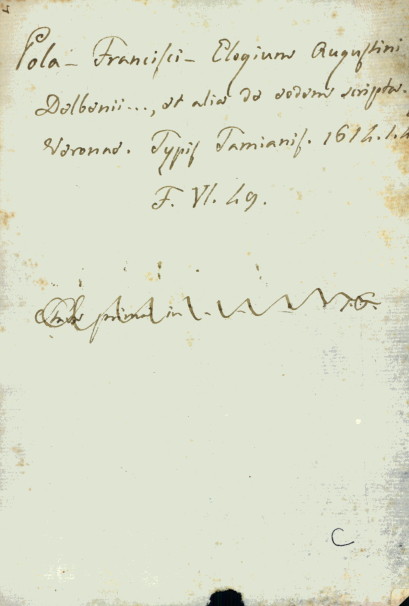 Pola – Francisci – Elogium Augustini
Delbenii..., et alia de eodem scripta.
Veronae. Typis Tamianis. 1614. 1.4
F. VI. 49.
C